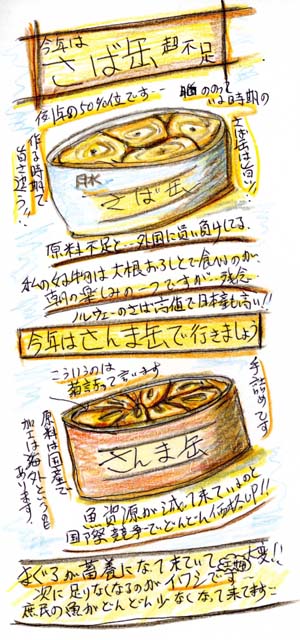 今年は
さば缶 超不足
例年の50%位です…
脂ののっている時期の
さば缶は旨い!!
作る時期で
旨さ違う!!
月水
さば缶
原料不足と…外国に買い負けしてる.
大根おろしとで食べるのが
楽しみの一つですが…残念
ノルウェーのさば高値で日本産も高い!!
今年はさんま缶で行きましょう
こういうのは
手詰めです
さんま缶
原料は国産で
加工は海外というのも
あります.
魚資源が減って来ているのと
国際競争でどんどん価格UP!!
まぐろが畜養になって来ていて
大変!!
次に足りなくなるのがイワシです…
庶民の魚がどんどん少なくなって来てます…